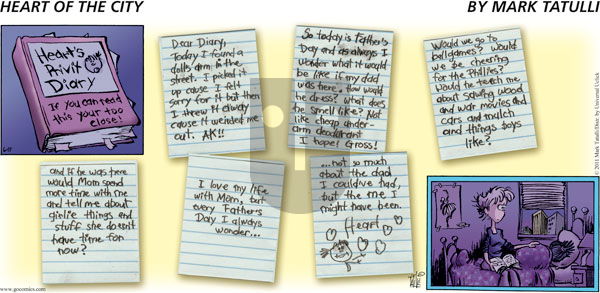 HEART OF THE CITY
BY MARK TATULLI
Heart's
Privit
Diary
If you can read
this your too
close!
Dear Diary,
Today I found a
dolls arm in the
street. I picked it
up cause I felt
sorry for it but then
I threw it away
cause it weirded me
out. AK!!
So today is Father's
Day and as always I
wonder what it would
be like if my dad
was here. How would
he dress? What does
he smell like? Not
like cheap under
arm deodorant
I hope! Gross!
Would we go to
ballgames? Would
we be cheering
for the Phillies?
Would he teach me
about sawing wood
and war movies and
cars and mulch
and things boys
like?
and if he was here
would Mom spend
more time with me
and tell me about
girlie things and
stuff she doesn't
have time for
now?
I love my life
with Mom, but
every Father's
Day I always
wonder...
...not so much
about the dad
I could've had,
but the me I
might have been.
Heart
www.gocomics.com
© 2011 Mark Tatulli/Dist. by Universal Uclick